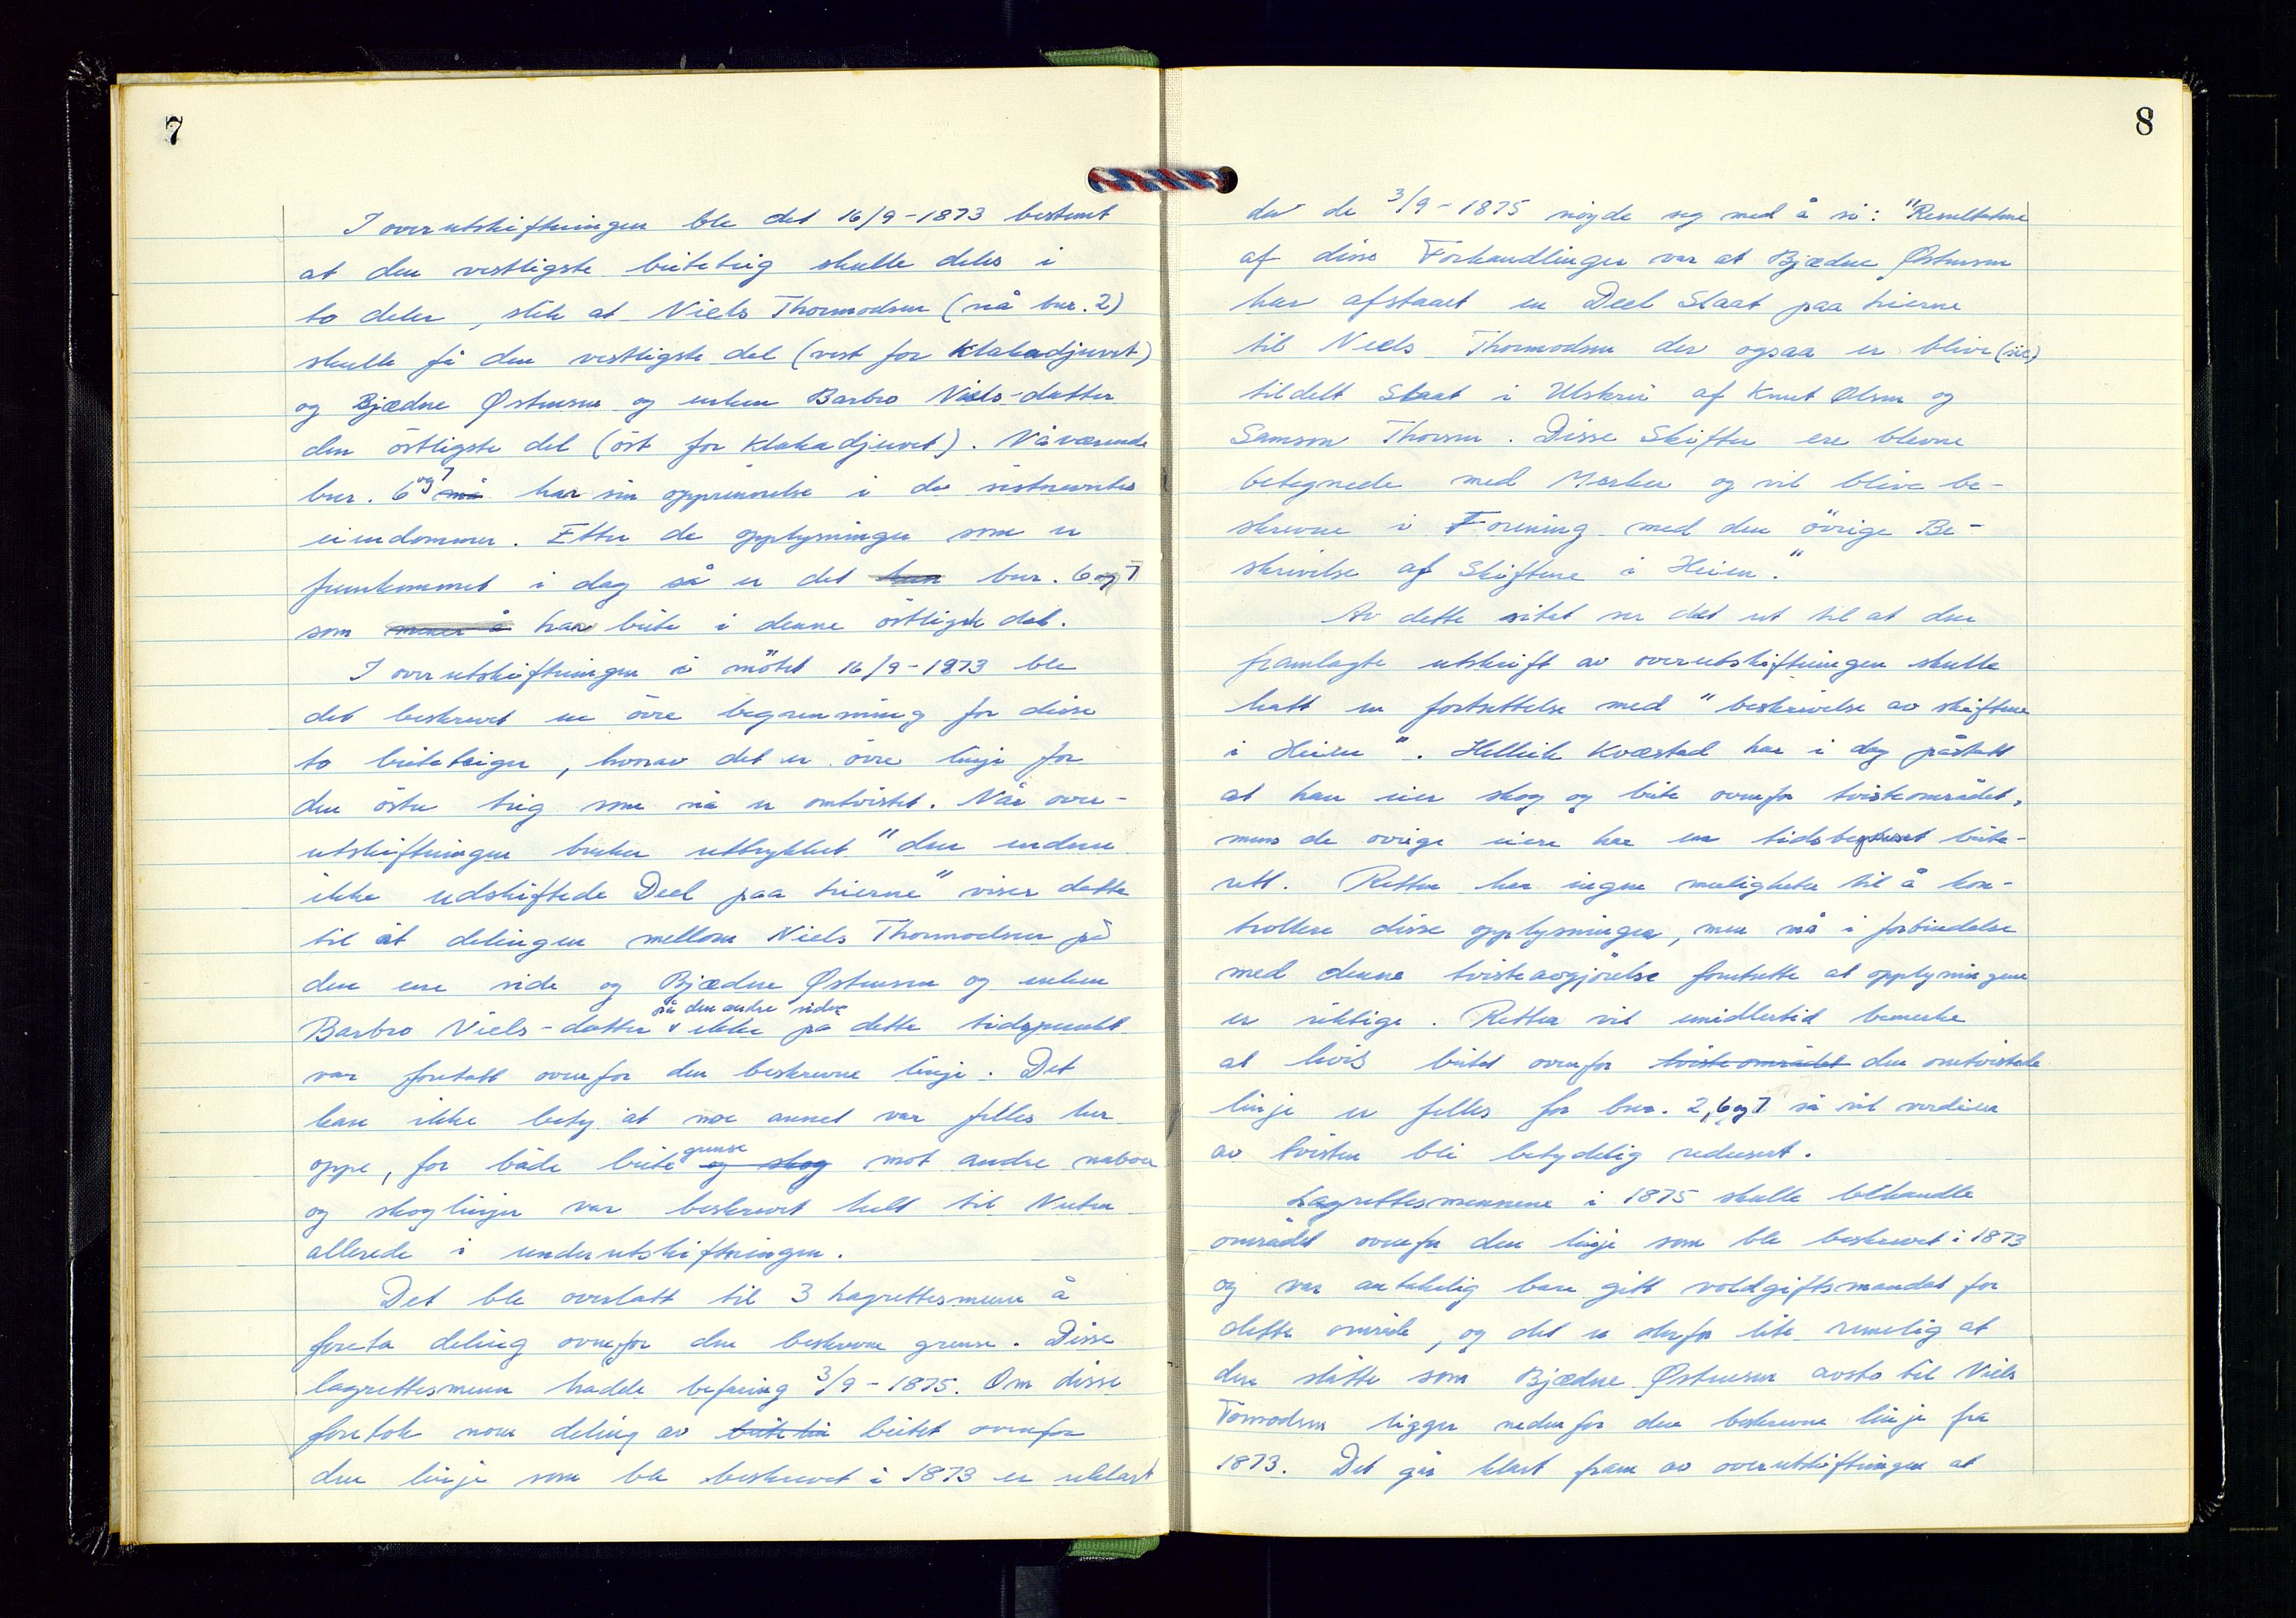 7
I overutskiftningen ble det 16/9-1873 bestemt
at den vestligste beiteteig skulle deles i
to deler, slik at Niels Thormodsen (nå bnr. 2)
skulle få den vestligste del (vest for Klakadjuvet)
og Bjædne Østensen og enken Barbro Niels-datter
den östligste del (öst for Klakadjuvet). Nåværende
bnr. 6 og 7 må har sin opprinnelse i de sistnevnte
eiendommer. Etter de opplysninger som er
fremkommet i dag så er det kun bnr. 6 og 7
som mener å har beite i denne östligste del.
I overutskiftningen i mötet 16/9-1873 ble
det beskrevet en övre begrensning for disse
to beiteteiger, hvorav det er övre linje for
den östre teig som nå er omtvistet. Når over-
utskiftningen bruker uttrykket "den endnu
ikke udskiftede Deel paa Lierne" viser dette
til at delingen mellom Niels Thormodsen på
den ene side og Bjædne Østensen og enken
på den andre siden
Barbro Niels-datter v ikke på dette tidspunkt
var foretatt ovenfor den beskrevne linje. Det
kan ikke bety at noe annet var felles her
oppe, for både beite grense og skog mot andre naboer
og skoglinjer var beskrevet helt til Nuten
allerede i underutskiftningen.
Det ble overlatt til 3 lagrettesmenn å
foreta deling ovenfor den beskrevne grense. Disse
lagrettesmenn hadde befaring 3/9-1875. Om disse
foretok noen deling av beitet ovenfor
den linje som ble beskrevet i 1873 er uklart
8
da de 3/9-1875 nöyde seg med å si: "Resultatene
af disse Forhandlinger var at Bjædne Østensen
har afstaaet en Deel Slaat paa Lierne
til Niels Thormodsen der ogsaa er blive (sic)
tildelt Slaat i Ulskrii af Knut Olsen og
Samson Thorsen. Disse Skifter ere blevne
betegnede med Merker og vil blive be-
skrevne i Forening med den övrige Be-
skrivelse af Skiftene i Heien."
Av dette sitat ser det ut til at den
framlagte utskrift av overutskiftningen skulle
hatt en fortsettelse med "beskrivelse av skiftene
i Heien". Helleik Kvæstad har i dag påstått
at han eier skog og beite ovenfor tvisteområdet,
mens de övrige eiere har en tidsbegrenset beite-
rett. Retten har ingen muligheter til å kon-
trollere disse opplysninger, men må i forbindelse
med denne tvisteavgjörelse forutsette at opplysningene
er riktige. Retten vil imidlertid bemerke
at hvis beitet ovenfor tvisteområdet den omtvistede
linje er felles for bnr. 2, 6 og 7 så vil verdien
av tvisten bli betydelig redusert.
Lagrettesmennene i 1875 skulle behandle
området ovenfor den linje som ble beskrevet i 1873
og var antakelig bare gitt voldgiftsmandat for
dette område, og det er derfor lite rimelig at
den slåtte som Bjædne Østensen avsto til Niels
Tormodsen ligger nedenfor den beskrevne linje fra
1873. Det går klart fram av overutskiftningen at